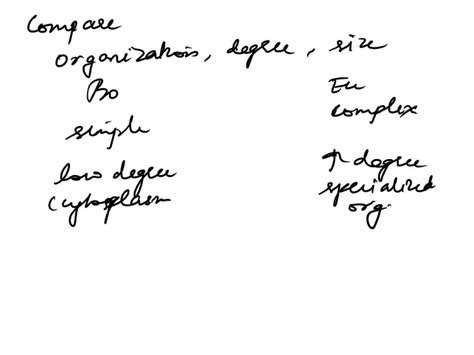 Compare
organizations, degree, size
Eu
simple
complex
low degree
↑ degree
cytoplasm
specialized
org.